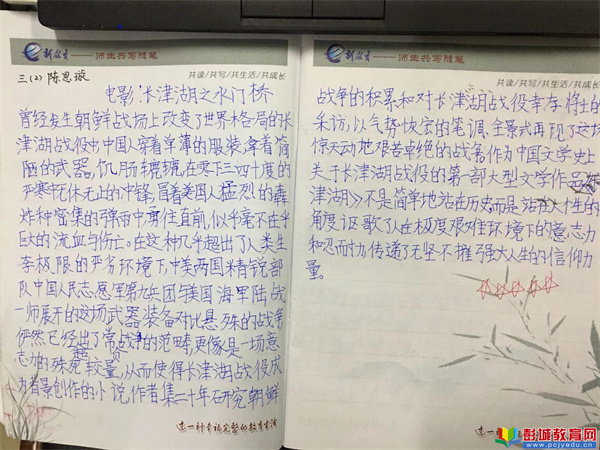 新教育——师生共写随笔
三(2)陈思璇
共读/共写/共生活/共成长
电影:长津湖之水门桥
曾经发生朝鲜战场上改变了世界格局的长
津湖战役中国人穿着单薄的服装,拿着简
陋的武器,饥肠辘辘,在零下三四十度的
严寒无休无止的冲锋,冒着美国人猛烈的轰
炸和密集的弹雨中勇往直前,似乎毫不在乎
巨大的流血与伤亡。在这种几乎超出了人类生
李极限的严劣环境下,中美两国精锐部
队中国人民志愿军第九兵团与美国海军陆战
一师展开的这场武器装备对比悬殊的战争
俨然已经出了常战争的范畴更像是一场意
志力的殊死较量,从而使得长津湖战役成
为背景创作的小说,作者集二十年研究朝鲜
过一种幸福完整的教育生活
新教育——师生共写随笔
共读/共写/共生活/共成长
战争的积累和对长津湖战役幸存将士的
采访,以气势恢宏的笔调、全景式再现了这场
惊天动地艰苦卓绝的战争,作为中国文学史上
关于长津湖战役的第一部大型文学作品
津湖》不是简单地站在历史而是站在人性的
角度讴歌了人在极度艰难环境下的意志力
和忍耐力传递了无坚不摧强大人生的信仰力
量。
过一种
彭城教育网
www.pcjyedu.cn